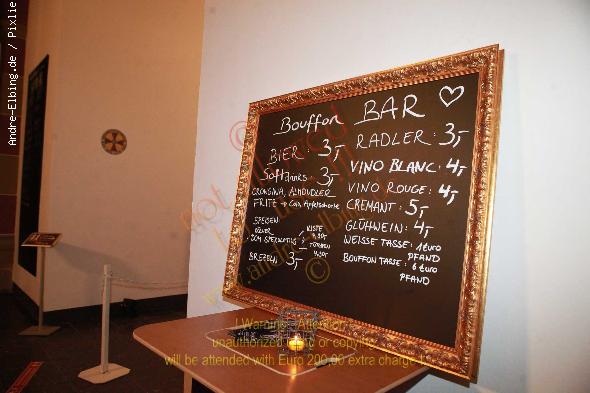 Andre-Elbing.de / Pixlie
Bouffon BAR ♡
BIER: 3,-
SoftDrinks 3,-
ORANGINA, ALMDUDLER
FRITZ → Cola, Apfelschorle
SPEISEN
BREZELN 3,-
RADLER: 3,-
VINO BLANC: 4,-
VINO ROUGE: 4,-
CREMANT: 5,-
GLÜHWEIN: 4,-
WEISSE TASSE: 1 Euro
PFAND
BOUFFON TASSE: 6 Euro
PFAND
! Warning - Attention
unauthorized or copying
will be attended with Euro 200,00 extra charge !